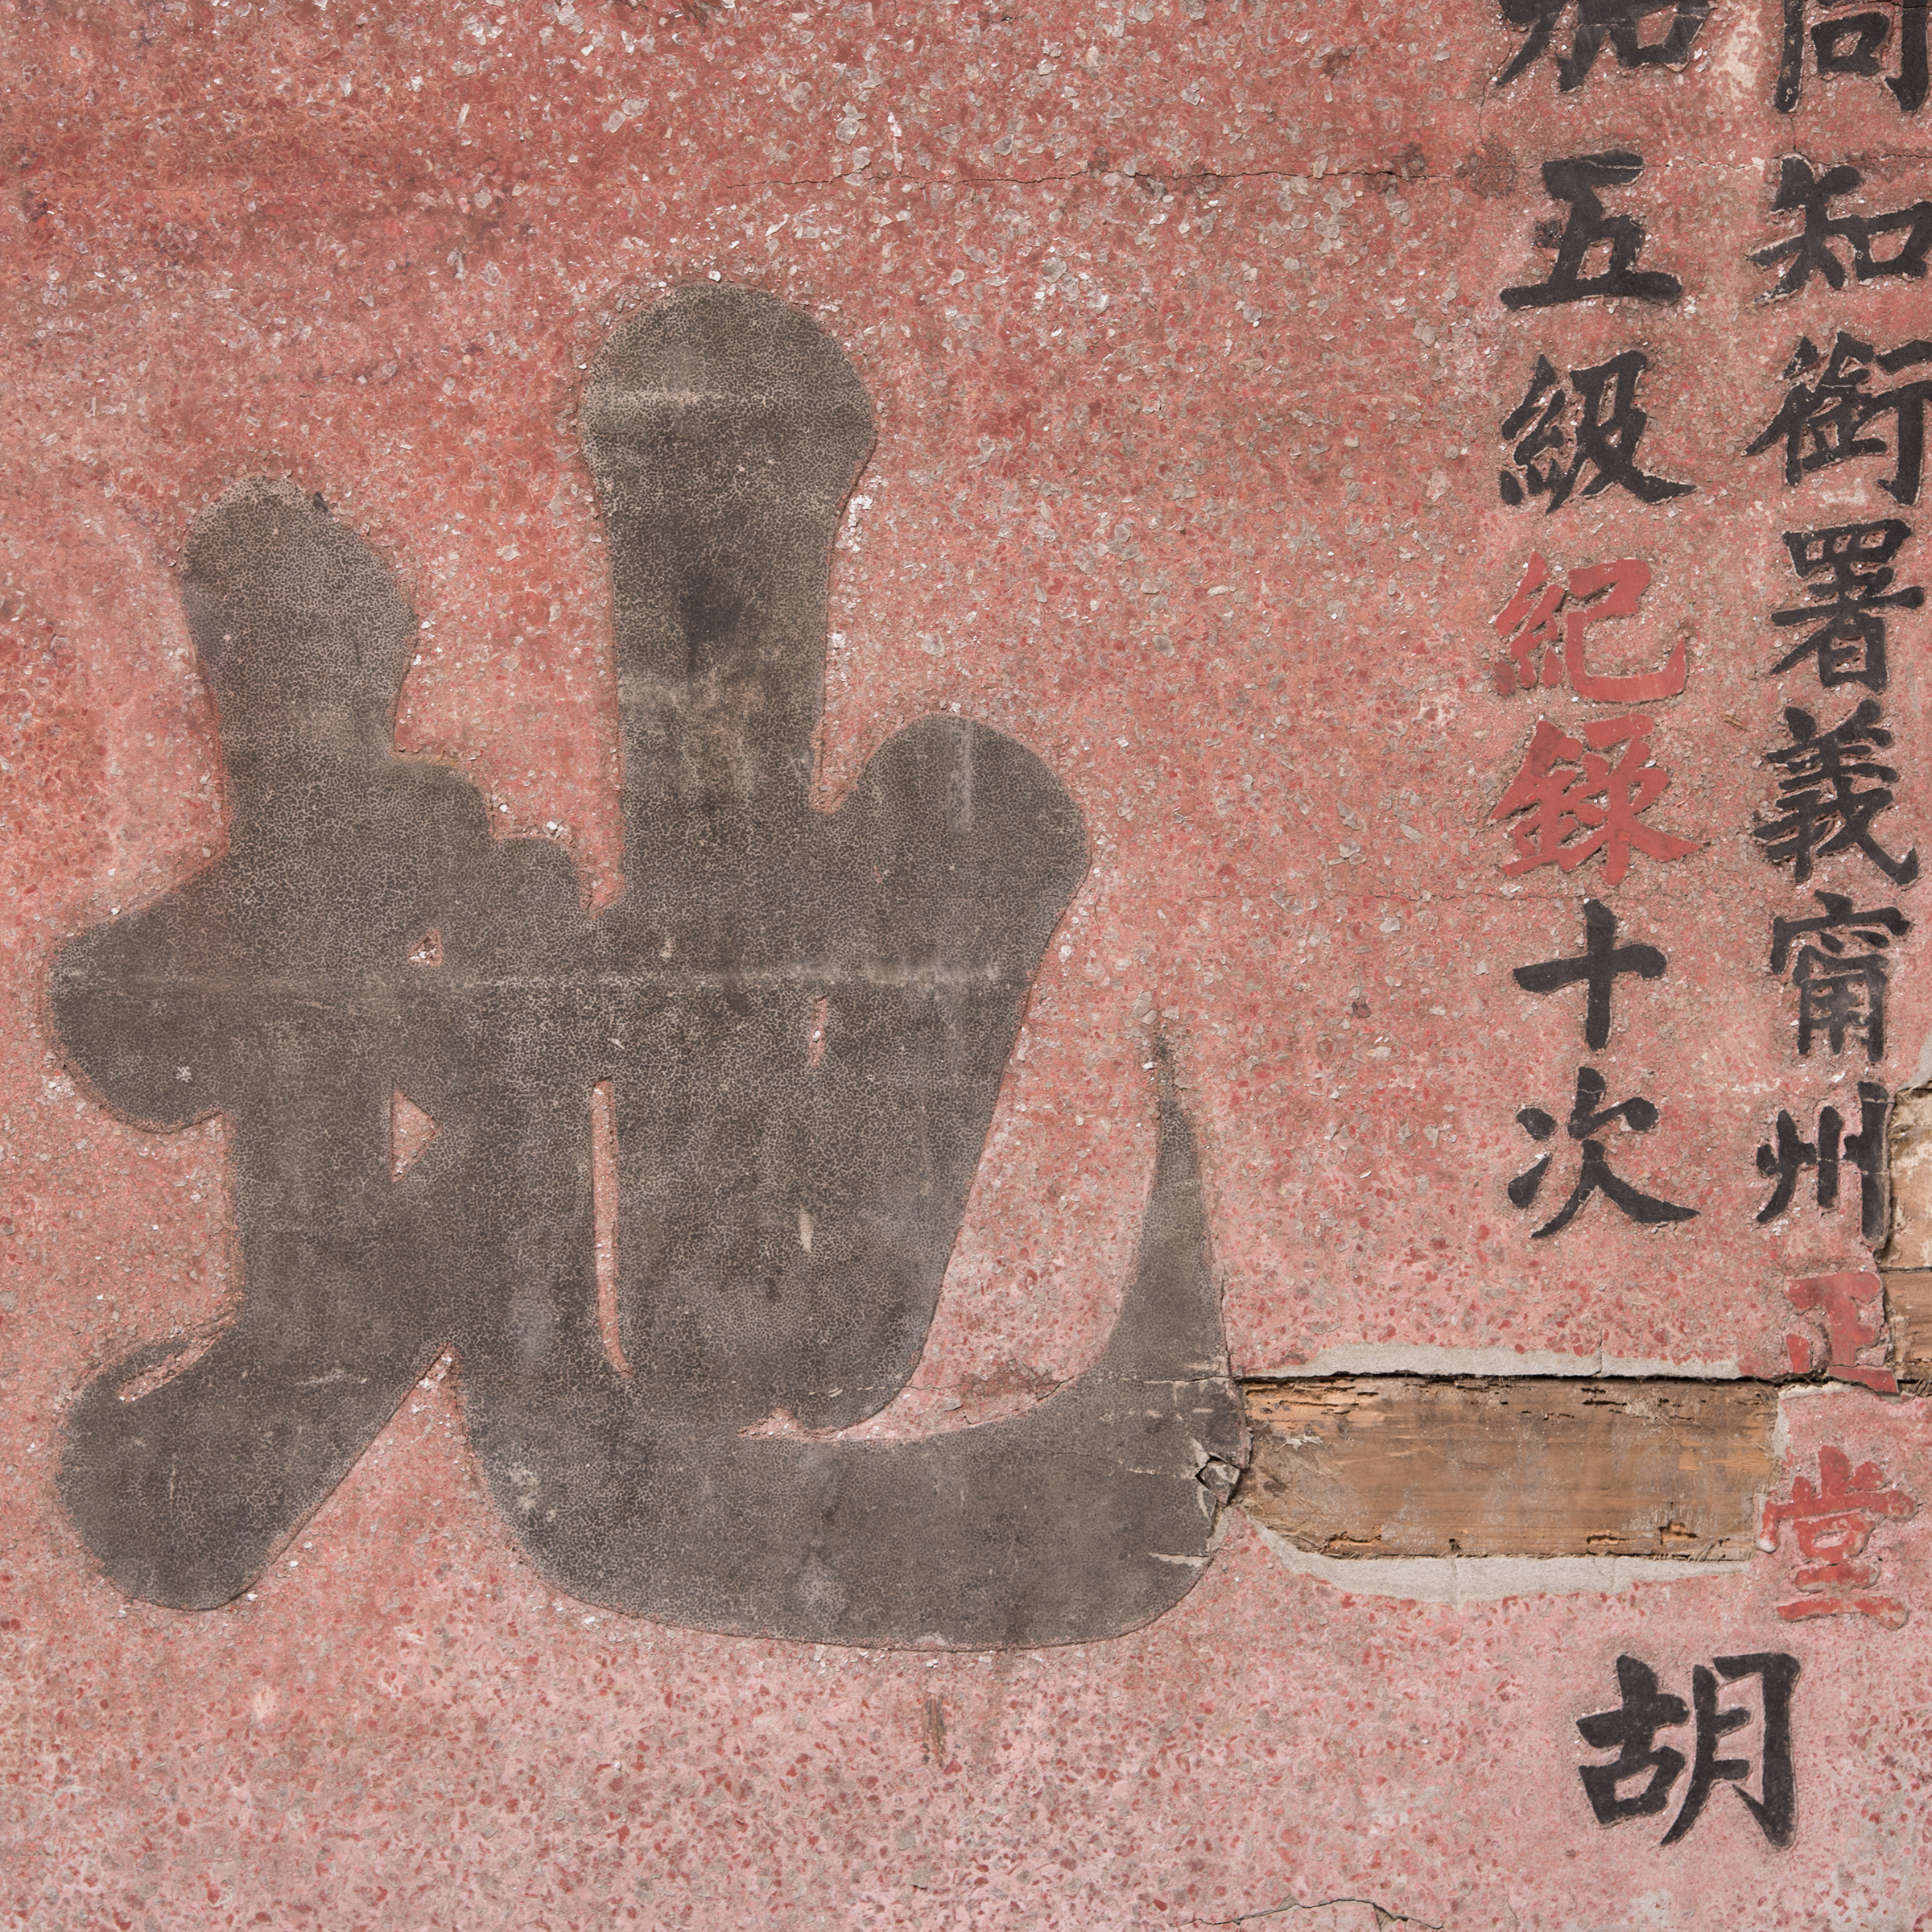 同知銜署義甯州正堂
加五級紀錄十次
胡
地